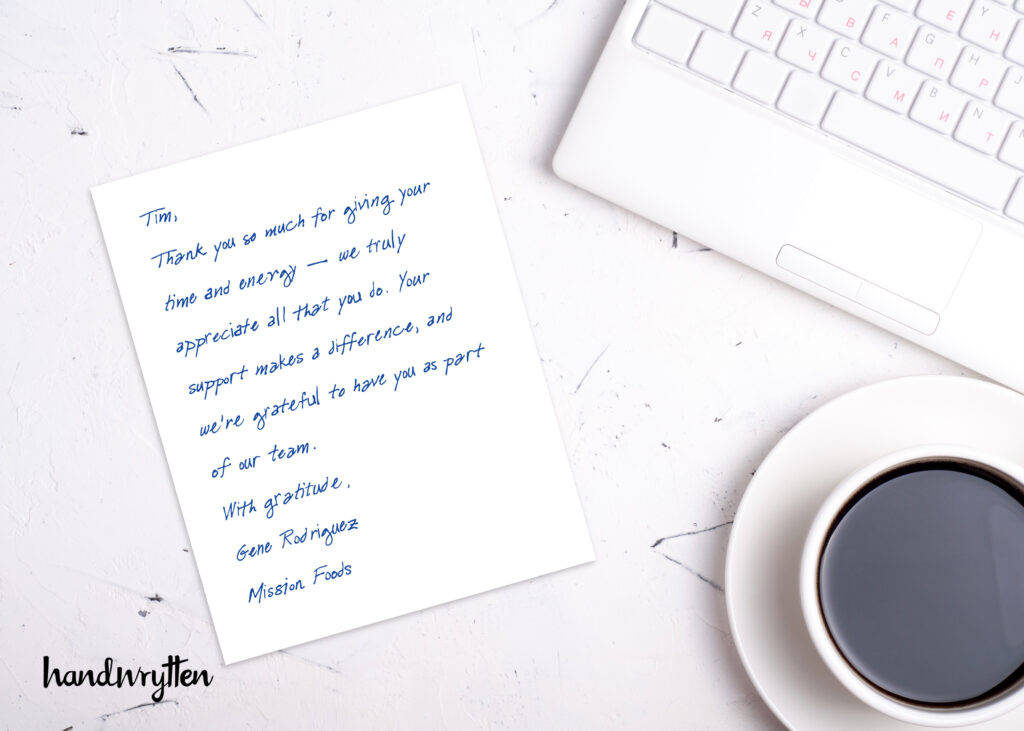 Tim,
Thank you so much for giving your
time and energy — we truly
appreciate all that you do. Your
support makes a difference, and
we're grateful to have you as part
of our team.
With gratitude,
Gene Rodriguez
Mission Foods
handwrytten
Ы В А Е Н
Z Я X Ч F G П H Р J
C С V М B И N Т